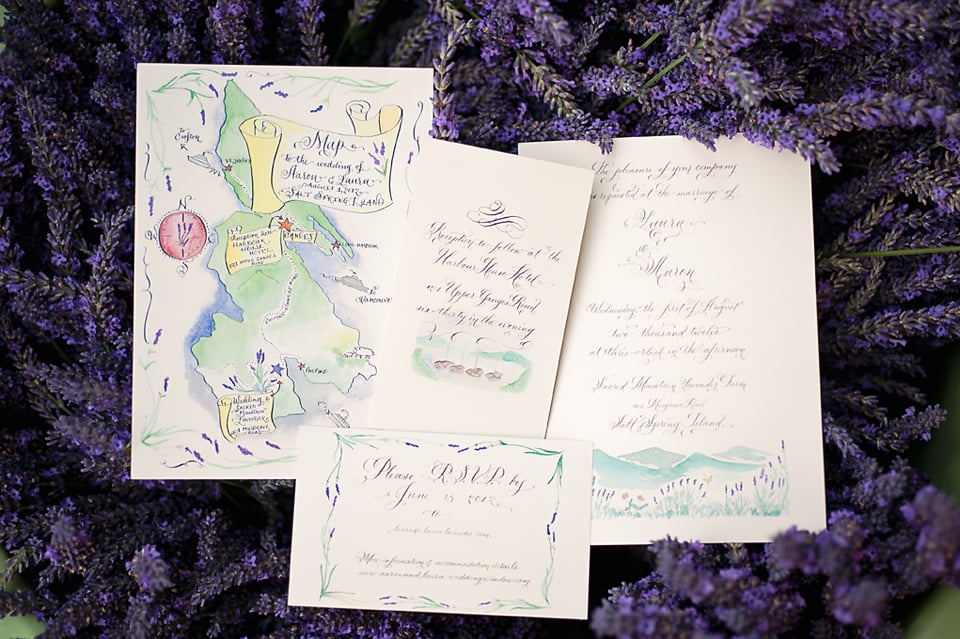 Map
to the wedding of
Aaron & Laura
August 1, 2012
Salt Spring Island
to
Crofton
N
Reception here
Harbour
House
Hotel
Upper Ganges
Ganges
Long Harbour
to
Vancouver
Fulford
Wedding
Sacred
Mountain
Lavender
Musgrave
Reception to follow at the
Harbour House Hotel
Upper Ganges Road
six-thirty in the evening
The pleasure of your company
is requested at the marriage of
Laura
&
Aaron
Wednesday, the first of August
two thousand twelve
at three o'clock in the afternoon
Sacred Mountain Lavender Farm
Musgrave Road
Salt Spring Island
Please R.S.V.P. by
June 15 2012
to
More information & accommodation details
www.aaronandlaura.weddingwindow.com